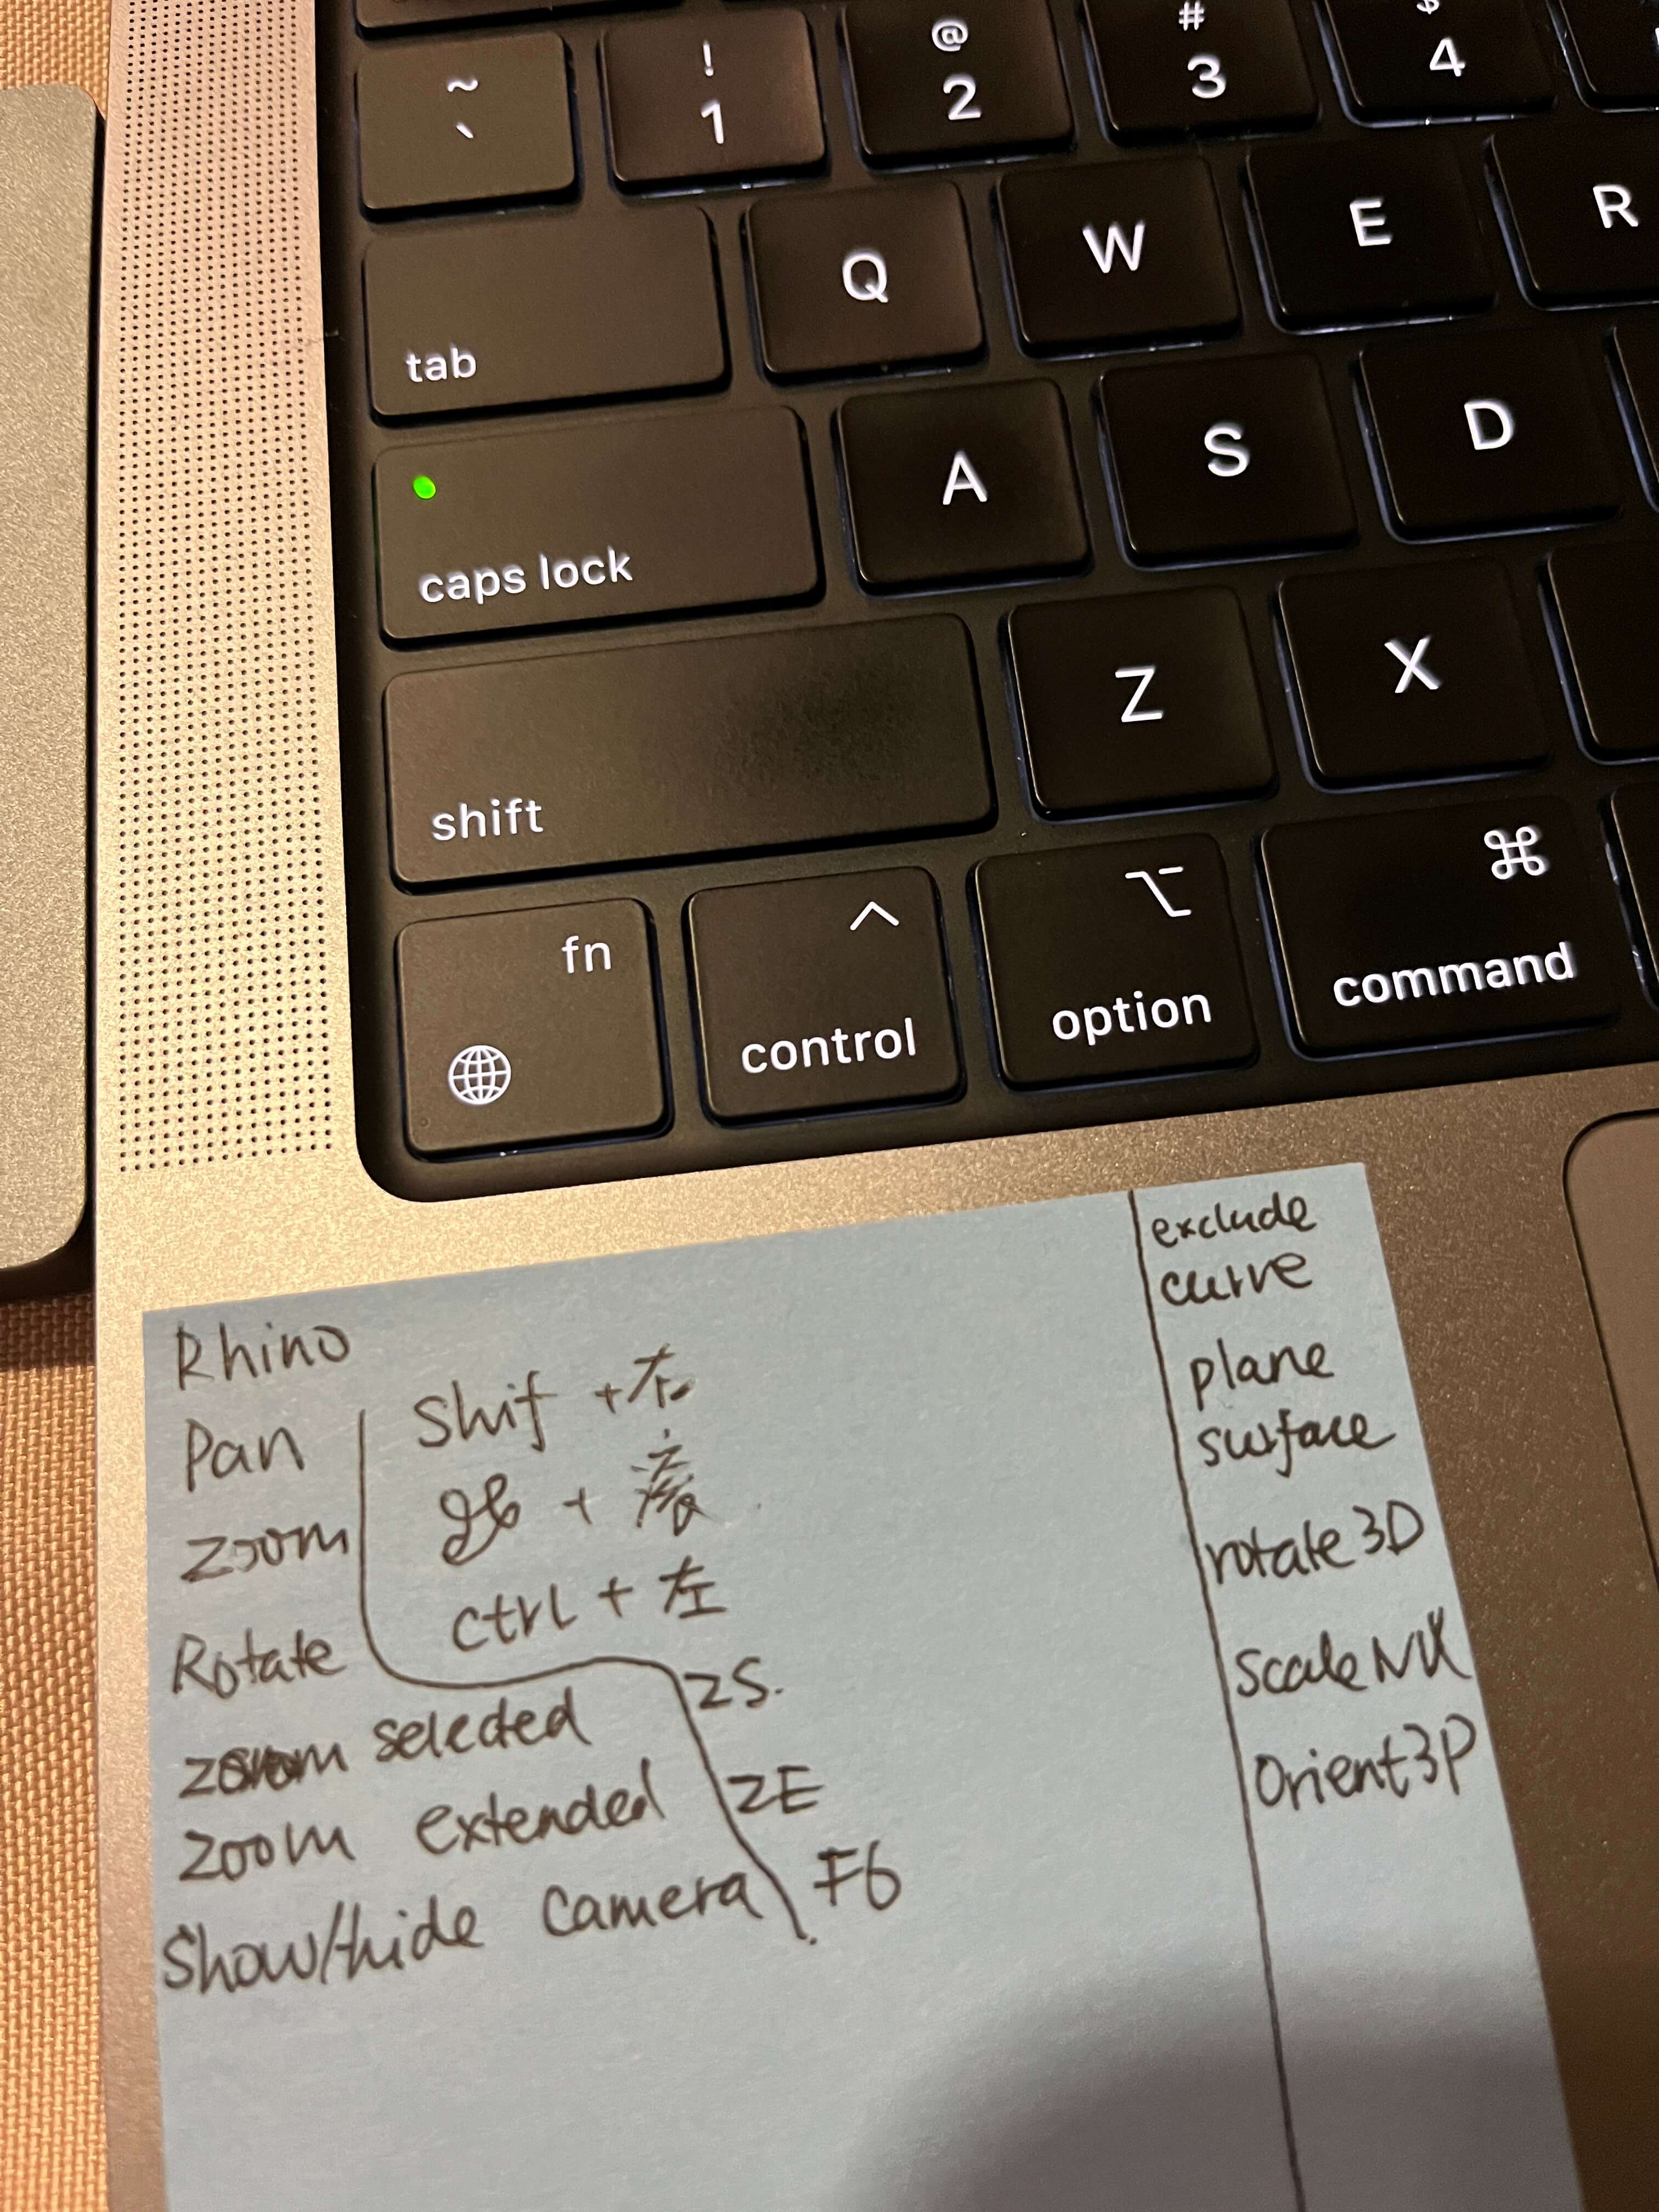 ~
`
!
1
@
2
#
3
$
4
tab
Q
W
E
R
caps lock
A
S
D
shift
Z
X
fn
^
control
⌥
option
⌘
command
Rhino
Pan Shif +左
zoom ⌘ +
Rotate ctrl + 左
zoom selected ZS.
zoom extended ZE
Show/hide camera F6
exclude
curve
plane
surface
rotate3D
Scale NU
Orient3P